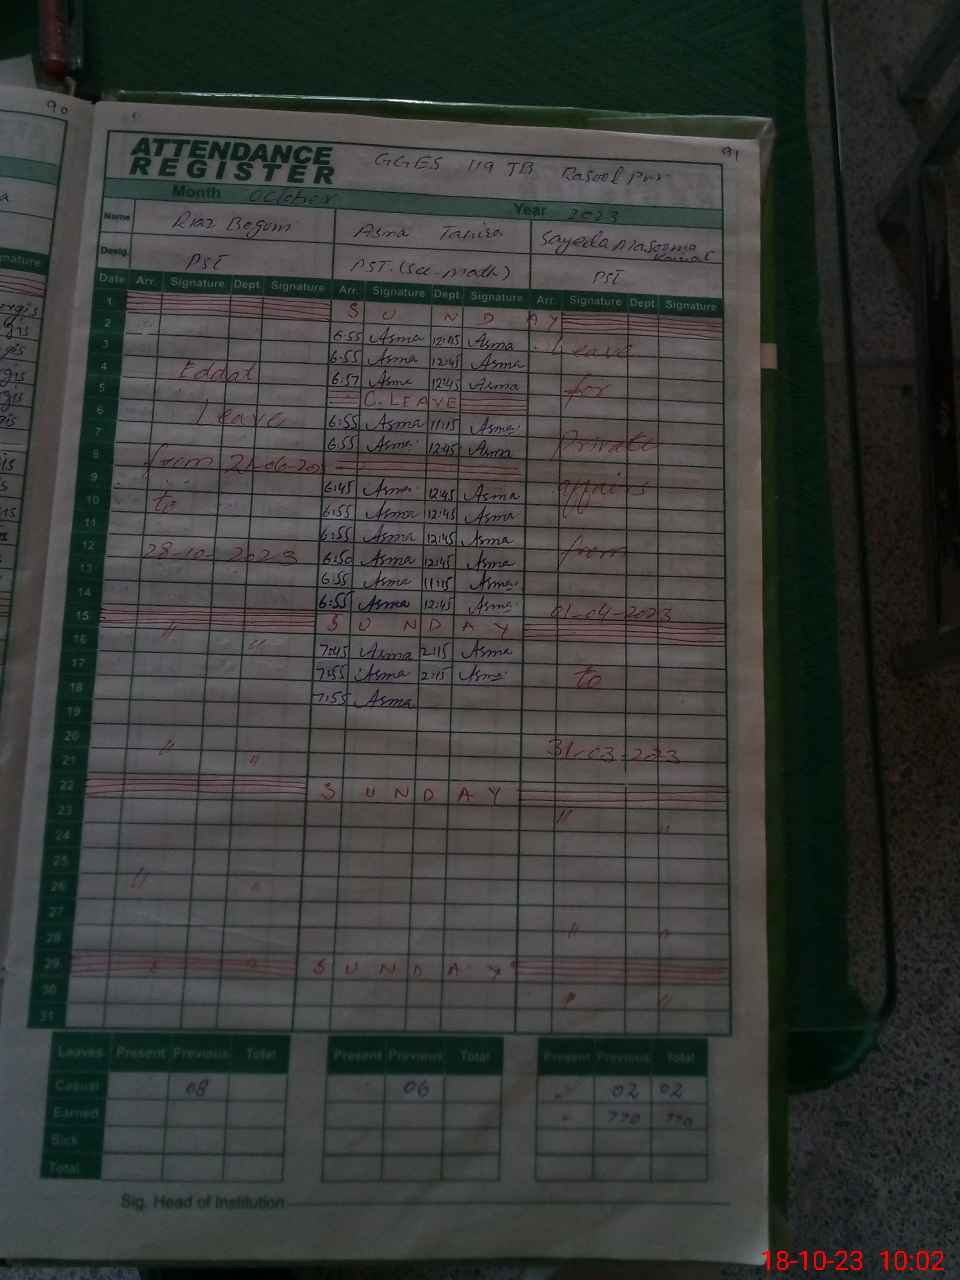 90
91
ATTENDANCE
REGISTER
GGES 119 JB Rasool Pur
Month October Year 2023
Name Riaz Begum Asma Tahira Sayeda Masooma
Desig. PST PST.(Sci-math) PST
Date Arr. Signature Dept Signature Arr. Signature Dept Signature Arr. Signature Dept Signature
1 S U N D A Y
2 6:55 Asma 12:45 Asma Leave
3 6:55 Asma 12:45 Asma
4 Eddat 6:57 Asma 12:45 Asma for
5 C. LEAVE
6 Leave 6:55 Asma 11:15 Asma
7 6:55 Asma 12:45 Asma Private
8 from
9 6:45 Asma 12:45 Asma affairs
10 to 6:55 Asma 12:45 Asma
11 6:55 Asma 12:45 Asma
12 28-10-2023 6:50 Asma 12:45 Asma from
13 6:55 Asma 11:15 Asma
14 6:55 Asma 12:45 Asma 01-04-2023
15 S U N D A Y
16 " " 7:45 Asma 2:15 Asma
17 7:55 Asma 2:15 Asma to
18 7:55 Asma
19
20 " 31-03-2023
21 "
22 S U N D A Y
23 " "
24
25
26 " "
27
28 " "
29 S U N D A Y
30 " "
31
Leaves Present Previous Total Present Previous Total Present Previous Total
Casual 08 06 02 02
Earned 770 770
Sick
Total
Sig. Head of Institution
18-10-23 10:02